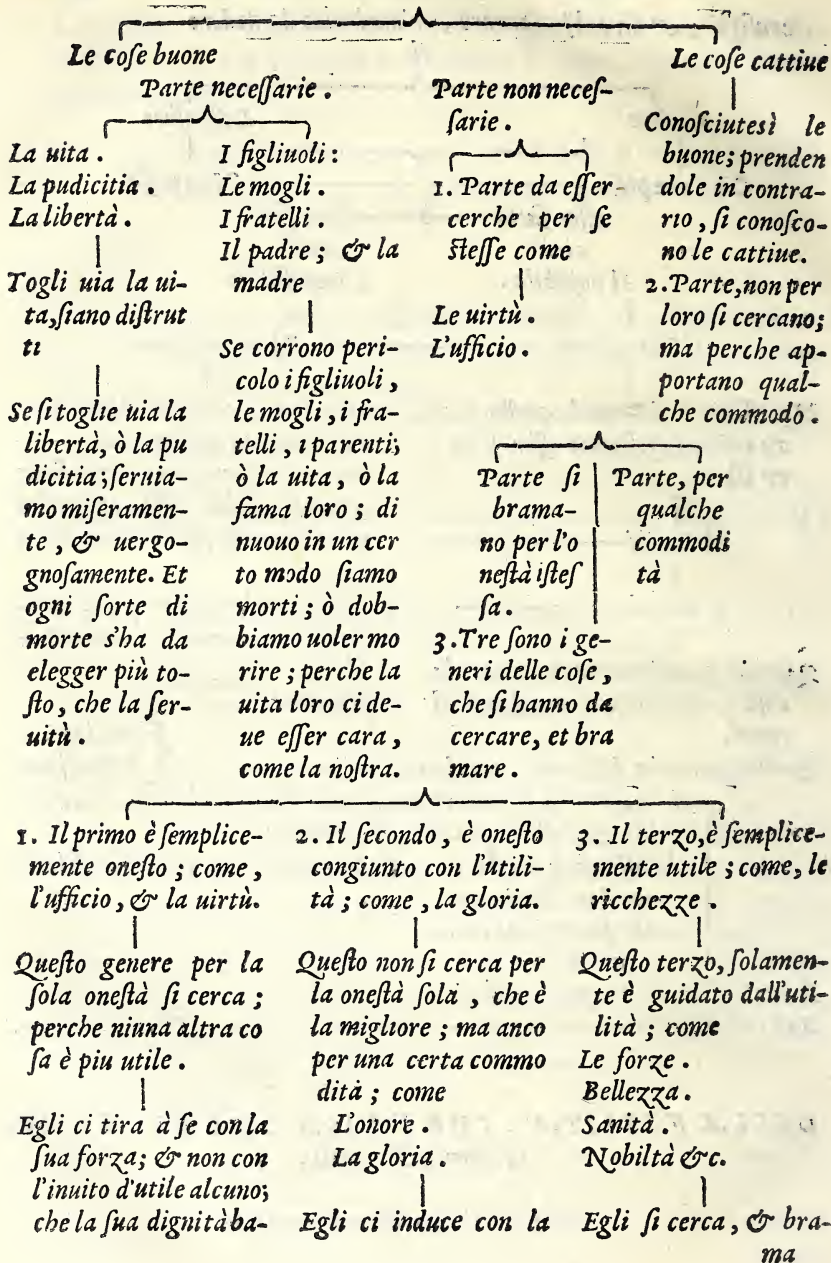 Le coſe buone
Parte neceſſarie.
La uita.
La pudicitia.
La libertà.
Togli uia la ui-
ta, ſiano diſtrut
ti
Se ſi toglie uia la
libertà, ò la pu
dicitia; ſeruia-
mo miſeramen-
te, & uergo-
gnoſamente. Et
ogni ſorte di
morte s'ha da
elegger più to-
ſto, che la ſer-
uitù.
I figliuoli:
Le mogli.
I fratelli.
Il padre; & la
madre
Se corrono peri-
colo i figliuoli,
le mogli, i fra-
telli, i parenti;
ò la uita, ò la
fama loro; di
nuouo in un cer
to modo ſiamo
morti; ò dob-
biamo uoler mo
rire; perche la
uita loro ci de-
ue eſſer cara,
come la noſtra.
Parte non neceſ-
ſarie.
1. Parte da eſſer
cerche per ſe
ſteſſe come
Le uirtù.
L'ufficio.
Le coſe cattiue
Conoſciuteſi le
buone; prenden
dole in contra-
rio, ſi conoſco-
no le cattiue.
2. Parte, non per
loro ſi cercano;
ma perche ap-
portano qual-
che commodo.
Parte ſi
brama-
no per l'o
neſtà iſteſ
ſa.
Parte, per
qualche
commodi
tà
3. Tre ſono i ge-
neri delle coſe,
che ſi hanno da
cercare, et bra
mare.
1. Il primo è ſemplice-
mente oneſto; come,
l'ufficio, & la uirtù.
Queſto genere per la
ſola oneſtà ſi cerca;
perche niuna altra co
ſa è piu utile.
Egli ci tira à ſe con la
ſua forza; & non con
l'inuito d'utile alcuno;
che la ſua dignità ba-
2. Il ſecondo, è oneſto
congiunto con l'utili-
tà; come, la gloria.
Queſto non ſi cerca per
la oneſtà ſola, che è
la migliore; ma anco
per una certa commo
dità; come
L'onore.
La gloria.
Egli ci induce con la
3. Il terzo, è ſemplice-
mente utile; come, le
ricchezze.
Queſto terzo, ſolamen-
te è guidato dall'uti-
lità; come
Le forze.
Bellezza.
Sanità.
Nobiltà &c.
Egli ſi cerca, & bra-
ma